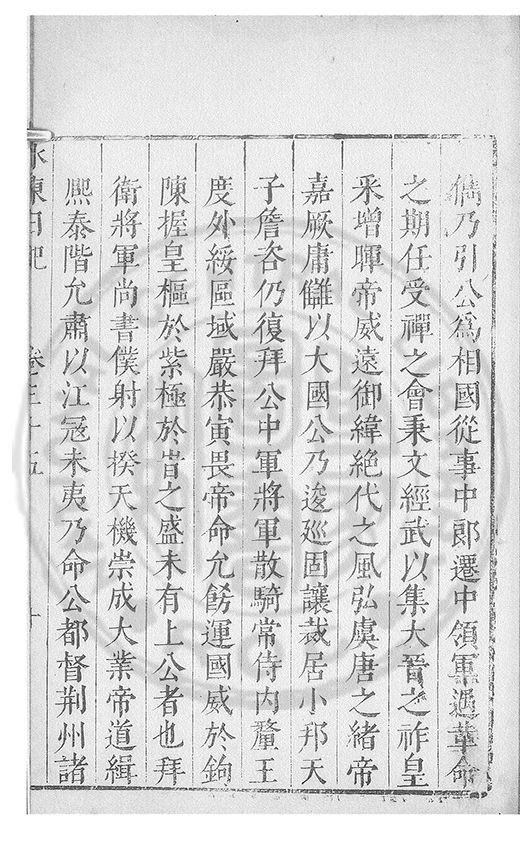 儁乃引公爲相國從事中郎遷中領軍遇革命
之期任受禪之會秉文經武以集大晉之祚皇
采增暉帝威遠御緯絶代之風弘虞唐之緒帝
嘉厥庸讎以大國公乃逡廵固讓裁居小邦天
子詹咨仍復拜公中軍將軍散騎常侍内釐王
度外綏區域嚴恭寅畏帝命允餝運國威於鉤
陳握皇樞於紫極於旹之盛未有上公者也拜
衛將軍尚書僕射以揆天機崇成大業帝道緝
熙泰階允肅以江冦未夷乃命公都督荆州諸
水東日記 卷三十五 十